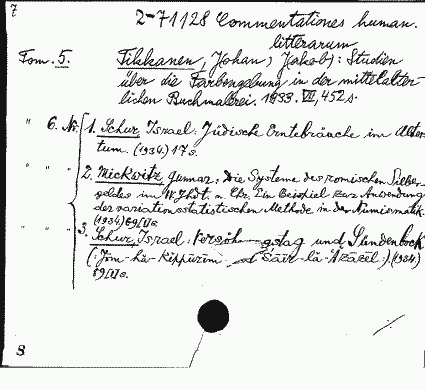 7
2-71128 Commentationes human.
litterarum
Tom. 5. Tikkanen, Johan, Jakob): Studien
über die Farbengebung in der mittelalter-
lichen Buchmalerei, 1933. VII, 452 s.
" 6. Nr. 1. Schur, Israel: Jüdische Erntebräuche im Alter-
tum. (1934) 17 s.
" " " 2. Mickwitz, Gunnar: Die Systeme des römischen Silber-
geldes im IV Jhdt. n. Chr. Ein Beispiel zur Anwendung
der variationsstatistischen Methode in der Numismatik.
(1934) 69 [1] s.
" " " 3. Schur, Israel: und Sündenbock
(: Jōm-ha-Kippūrīm Sāīr-la-Azāzēl :) (1934)
89 [1] s.
S